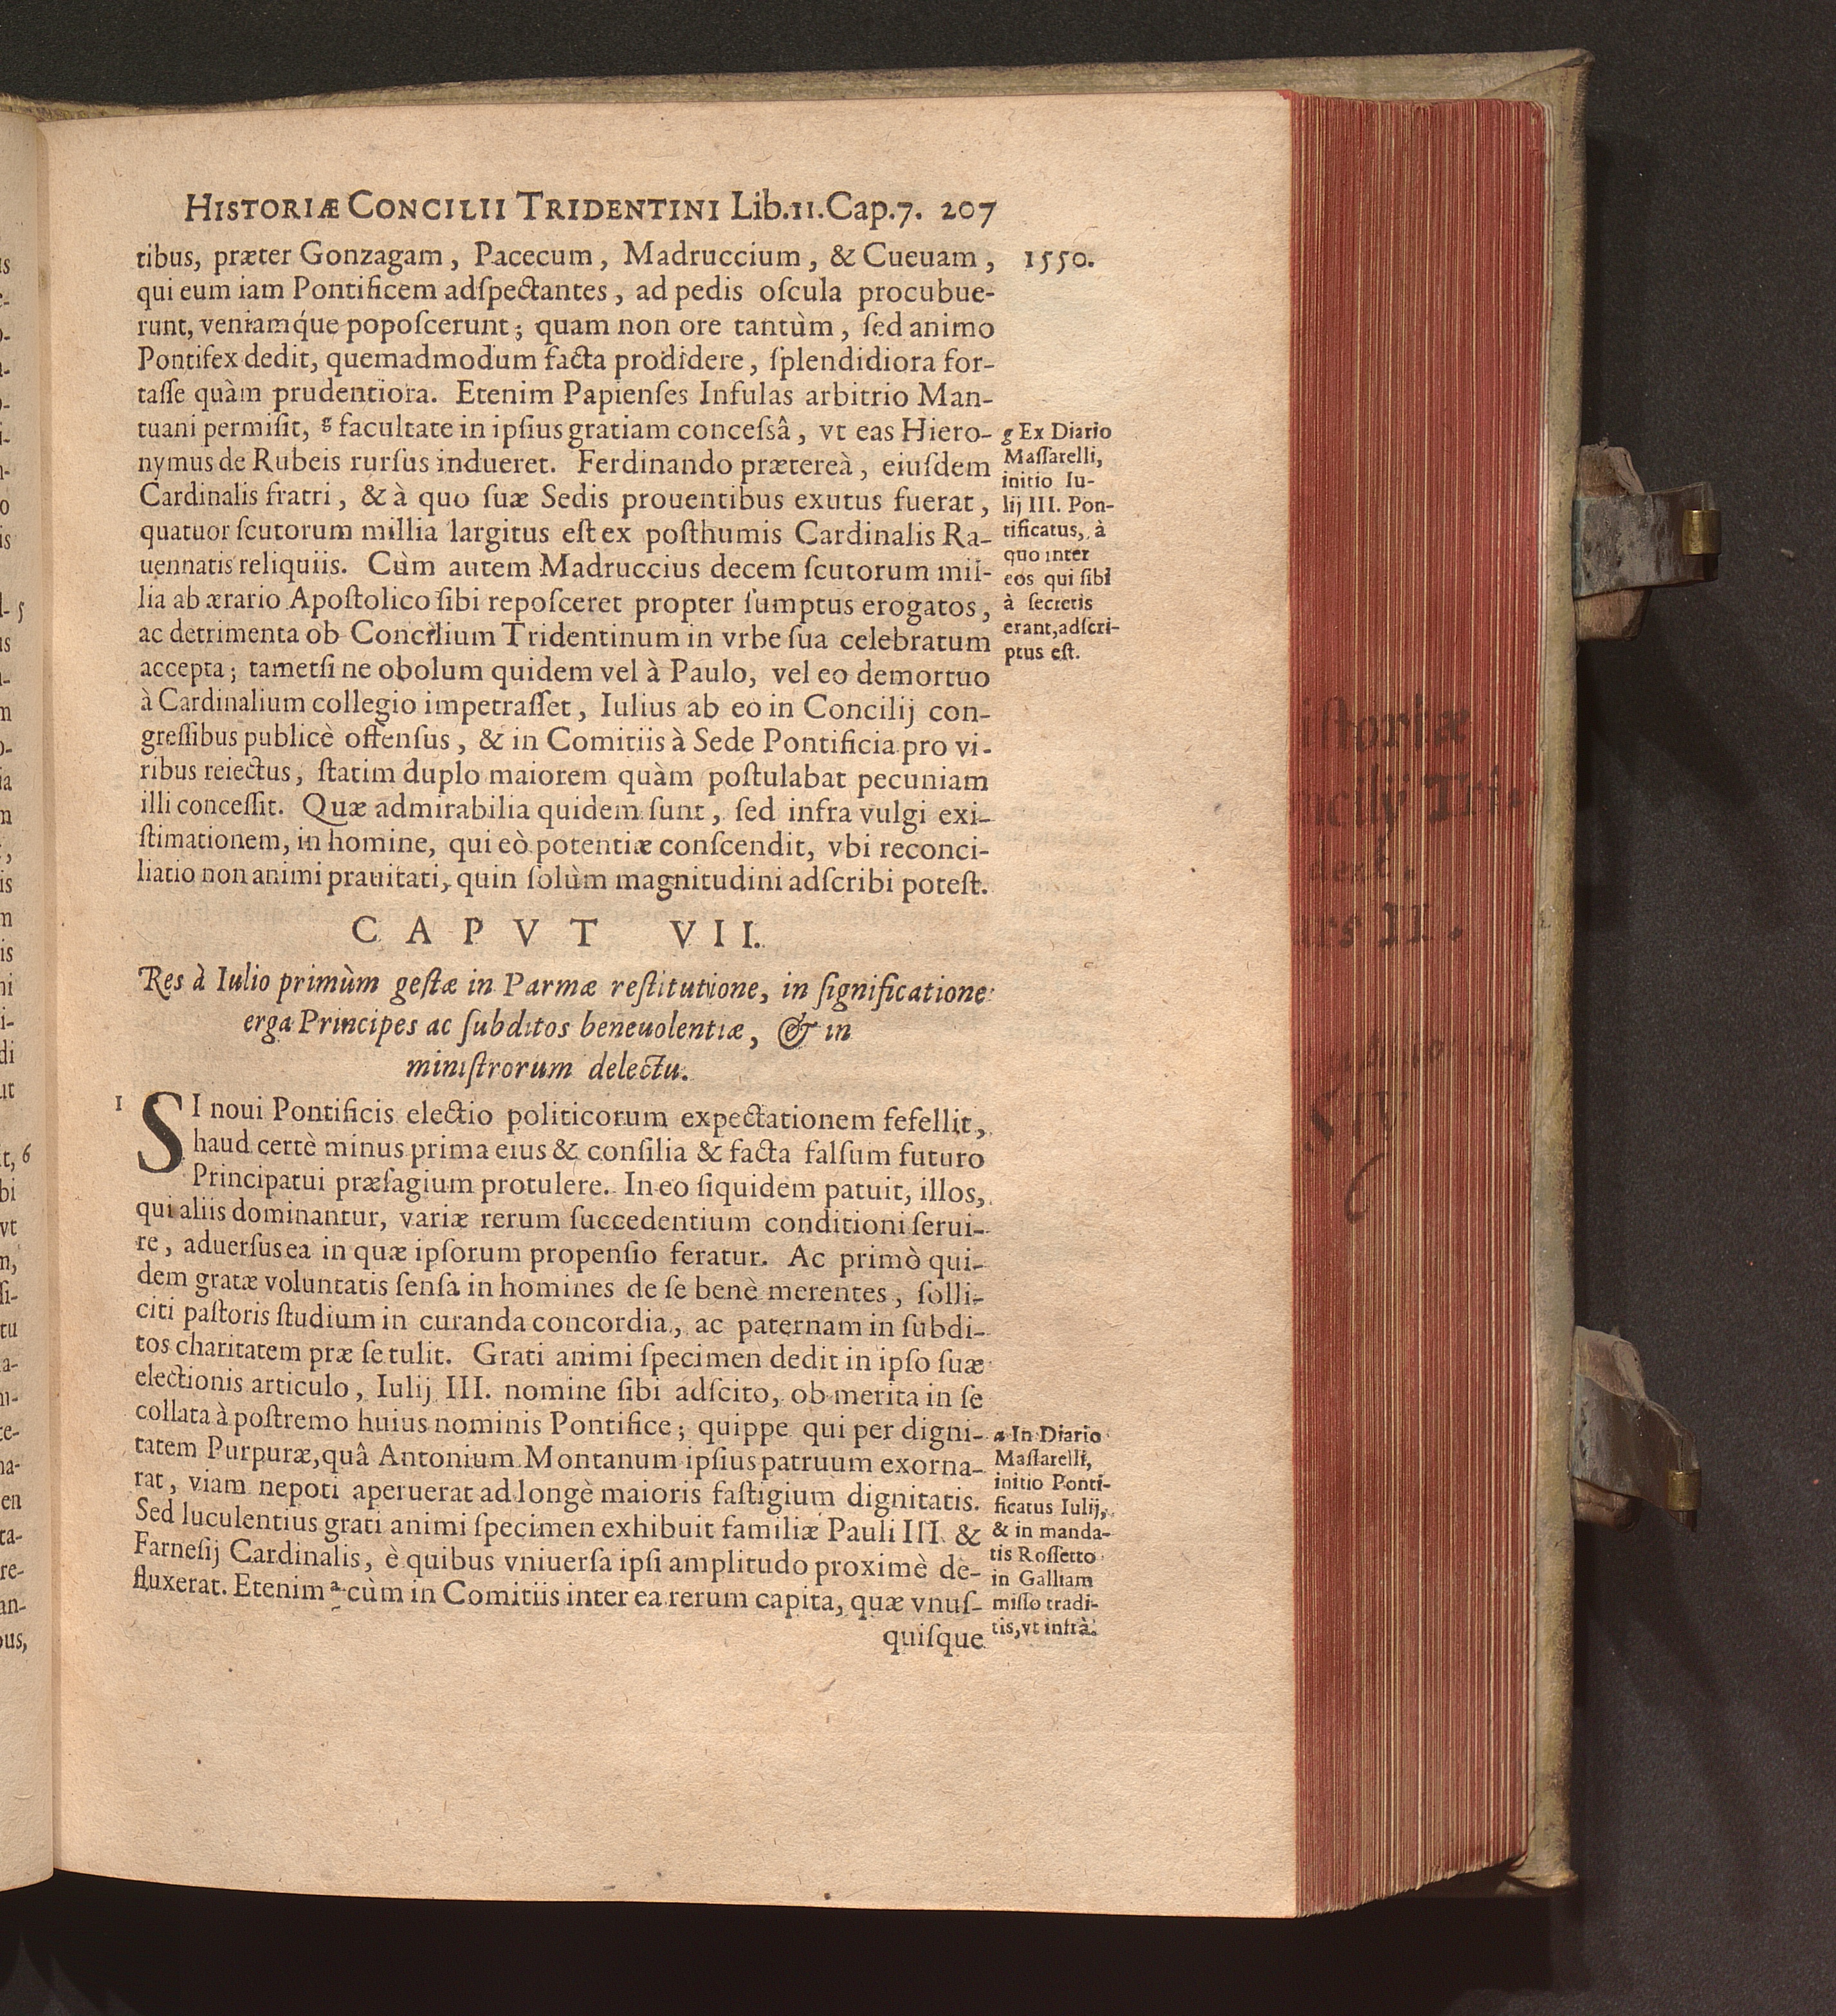 HISTORIÆ CONCILII TRIDENTINI Lib.11.Cap.7. 207
1550.
tibus, præter Gonzagam, Pacecum, Madruccium, & Cueuam,
qui eum iam Pontificem adſpectantes, ad pedis oſcula procubue-
runt, veniamq́ue popoſcerunt; quam non ore tantùm, ſed animo
Pontifex dedit, quemadmodum facta prodidere, ſplendidiora for-
taſſe quàm prudentiora. Etenim Papienſes Infulas arbitrio Man-
tuani permiſit, g facultate in ipſius gratiam conceſsâ, vt eas Hiero-
nymus de Rubeis rurſus indueret. Ferdinando prætereà, eiuſdem
Cardinalis fratri, & à quo ſuæ Sedis prouentibus exutus fuerat,
quatuor ſcutorum millia largitus eſt ex poſthumis Cardinalis Ra-
uennatis reliquiis. Cùm autem Madruccius decem ſcutorum mil-
lia ab ærario Apoſtolico ſibi repoſceret propter ſumptus erogatos,
ac detrimenta ob Concilium Tridentinum in vrbe ſua celebratum
accepta; tametſi ne obolum quidem vel à Paulo, vel eo demortuo
à Cardinalium collegio impetraſſet, Iulius ab eo in Concilij con-
greſſibus publicè offenſus, & in Comitiis à Sede Pontificia pro vi-
ribus reiectus, ſtatim duplo maiorem quàm poſtulabat pecuniam
illi conceſſit. Quæ admirabilia quidem ſunt, ſed infra vulgi exi-
ſtimationem, in homine, qui eò potentiæ conſcendit, vbi reconci-
liatio non animi prauitati, quin ſolùm magnitudini adſcribi poteſt.
g Ex Diario
Maſſarelli,
initio Iu-
lij III. Pon-
tificatus, à
quo inter
eos qui ſibi
à ſecretis
erant, adſcri-
ptus eſt.
CAPVT VII.
Res à Iulio primùm geſtæ in Parmæ reſtitutione, in ſignificatione
erga Principes ac ſubditos beneuolentiæ, & in
miniſtrorum delectu.
1 SI noui Pontificis electio politicorum expectationem fefellit,
haud certè minus prima eius & conſilia & facta falſum futuro
Principatui præſagium protulere. In eo ſiquidem patuit, illos,
qui aliis dominantur, variæ rerum ſuccedentium conditioni ſerui-
re, aduerſus ea in quæ ipſorum propenſio feratur. Ac primò qui-
dem gratæ voluntatis ſenſa in homines de ſe benè merentes, ſolli-
citi paſtoris ſtudium in curanda concordia, ac paternam in ſubdi-
tos charitatem præ ſe tulit. Grati animi ſpecimen dedit in ipſo ſuæ
electionis articulo, Iulij III. nomine ſibi adſcito, ob merita in ſe
collata à poſtremo huius nominis Pontifice; quippe qui per digni-
tatem Purpuræ, quâ Antonium Montanum ipſius patruum exorna-
rat, viam nepoti aperuerat ad longè maioris faſtigium dignitatis.
Sed luculentius grati animi ſpecimen exhibuit familiæ Pauli III. &
Farneſij Cardinalis, è quibus vniuerſa ipſi amplitudo proximè de-
fluxerat. Etenim a cùm in Comitiis inter ea rerum capita, quæ vnuſ-
quiſque
a In Diario
Maſſarelli,
initio Ponti-
ficatus Iulij,
& in manda-
tis Roſſetto
in Galliam
miſſo tradi-
tis, vt infrà.